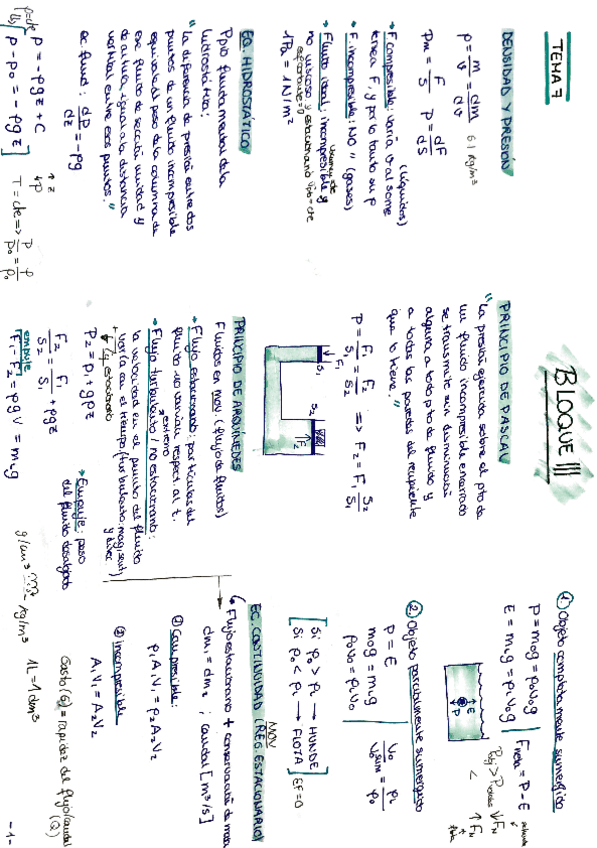 BLOQUE III
TEMA 7
DENSIDAD Y PRESIÓN
ρ = m/V = dm/dV
SI kg/m³
Pm = F/S   P = dF/dS
(líquidos)
• F. compresible: varía V al some
terlea F, y por lo tanto su ρ
• F. incompresible: NO " (gases)
• Fluido ideal: incompresible y
no viscoso y estacionario
1Pa = 1N/m²
EQ. HIDROSTÁTICO
Ppio fundamental de la
hidrostática:
"la diferencia de presión entre dos
puntos de un fluido incompresible
equivale al peso de la columna de
ese fluido de sección unidad y
de altura igual a la distancia
vertical entre esos puntos."
ec. fund: dP/dz = -ρg
ρ=cte
P = -ρgz + C
P - P₀ = -ρgz
↑z ↓P
T = cte => P/P₀ = ρ/ρ₀
PRINCIPIO DE PASCAL
"La presión ejercida sobre el pto de
un fluido incompresible encerrado
se transmite sin disminución
alguna a todo pto del fluido y
a todas las paredes del recipiente
que lo tiene."
P = F₁/S₁ = F₂/S₂ => F₂ = F₁ S₂/S₁
F₁
S₁
S₂
F₂
PRINCIPIO DE ARQUÍMEDES
Fluidos en mov (flujo de fluidos)
• Flujo estacionario: partículas del
fluido no varían respect. al t.
• Flujo turbulento extremo / no estacionario:
la velocidad en el punto del fluido
varía en el tiempo (turbulento: mag, sent
y direc)
P₂ = P₁ + gρz
F₂/S₂ = F₁/S₁ + ρgz
empuje
F₁ - F₂ = ρgV = mLg
• Empuje: peso
del fluido desalojado
g/cm³ → kg/m³
1L = 1dm³
① Objeto completamente sumergido
P = m₀g = ρ₀V₀g
E = mLg = ρLV₀g
Fneta = P - E
E
P
② Objeto parcialmente sumergido
P = E
m₀g = mLg
ρ₀V₀ = ρLV
V₀/Vsum = ρL/ρ₀
Si ρ₀ > ρL → HUNDE
Si ρ₀ < ρL → FLOTA
ΣF=0
MOV
EC. CONTINUIDAD (REG. ESTACIONARIO)
Flujo estacionario + conservación de masa
dm₁ = dm₂ ; caudal [m³/s]
① Compresible:
ρ₁A₁V₁ = ρ₂A₂V₂
② incompresible
A₁V₁ = A₂V₂
Gasto (G) = rapidez del flujo/caudal
(Q)
-1-